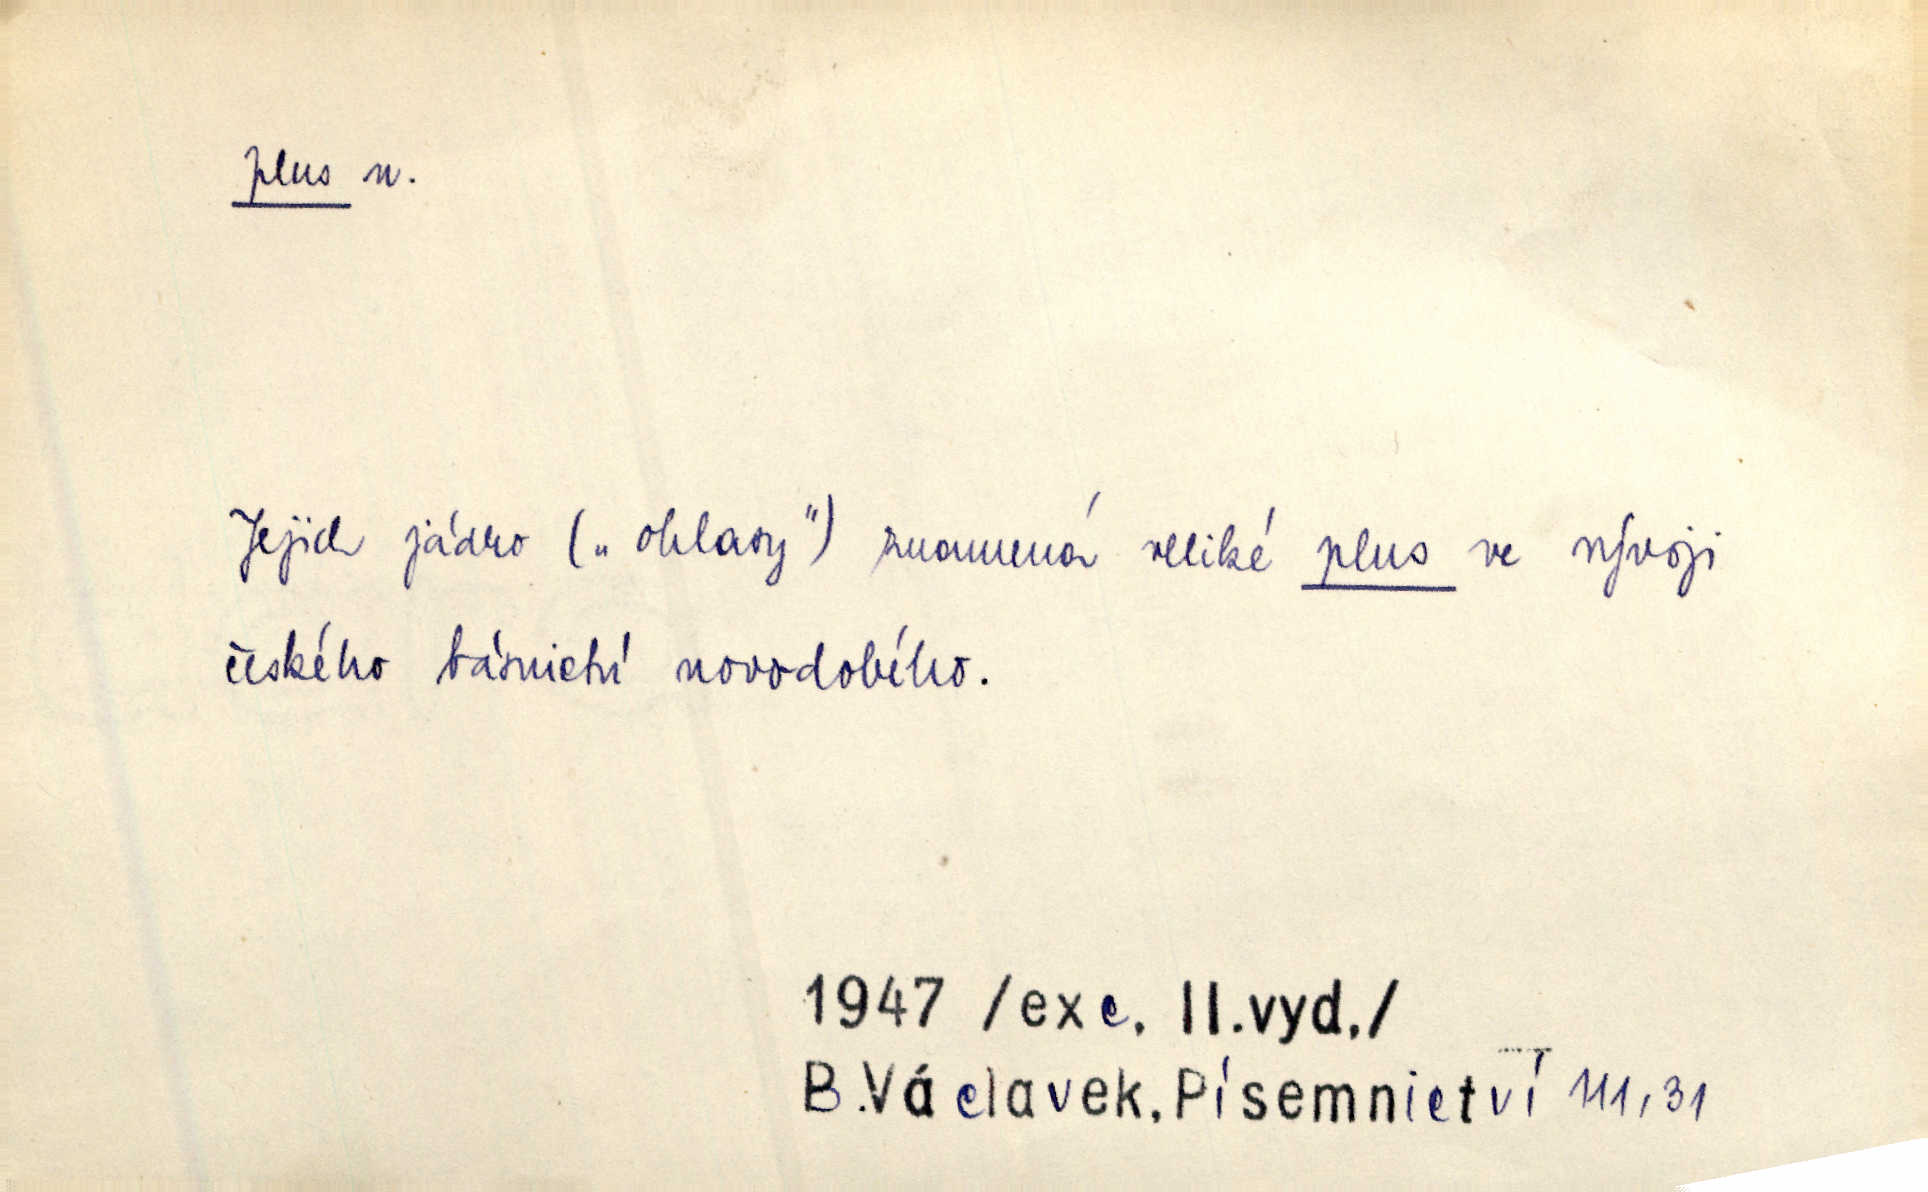 plus n.
Jejich jádro („ohlasy") znamená veliké plus ve vývoji
českého básnictví novodobého.
1947 /exc. II.vyd./
B.Václavek, Písemnictví 111,31